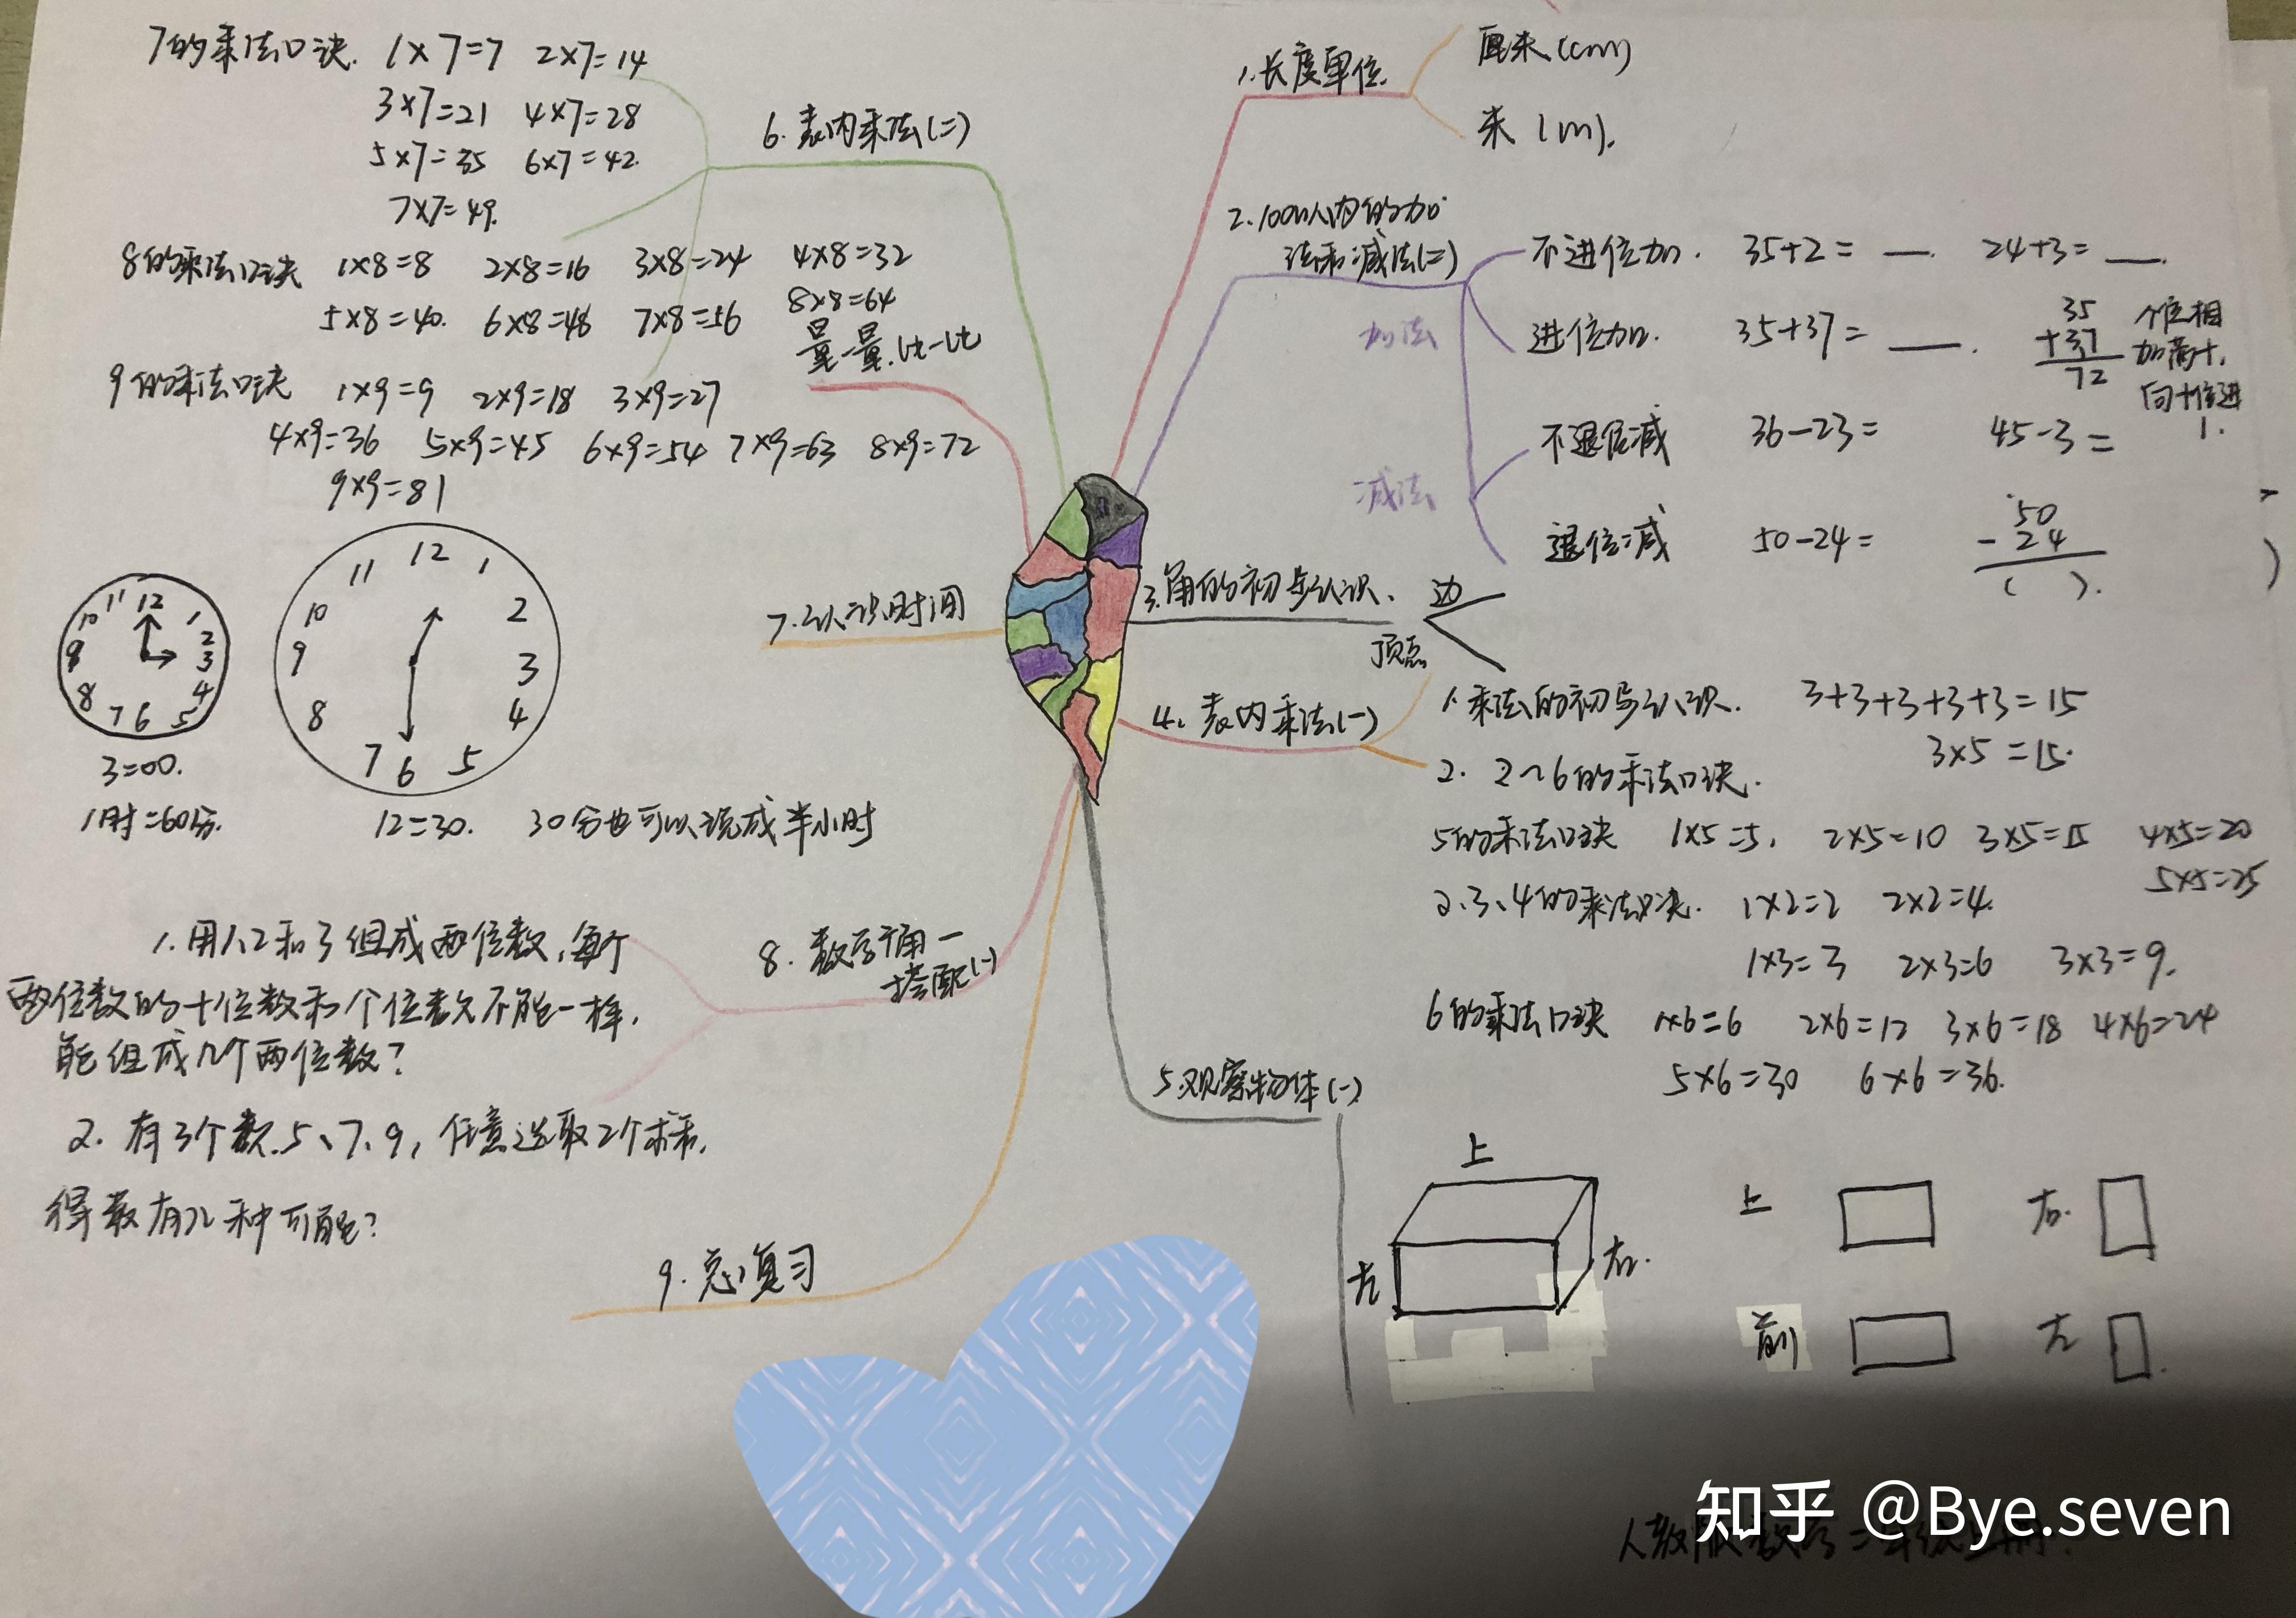 7的乘法口诀. 1×7=7 2×7=14
3×7=21 4×7=28
5×7=35 6×7=42.
7×7=49.
6. 表内乘法(二)
8的乘法口诀 1×8=8 2×8=16 3×8=24 4×8=32
5×8=40. 6×8=48 7×8=56 8×8=64
量一量.比一比
9的乘法口诀 1×9=9 2×9=18 3×9=27
4×9=36 5×9=45 6×9=54 7×9=63 8×9=72
9×9=81
11 12 1
10 2
9 3
8 4
7 6 5
11 12 1
10 2
9 3
8 4
7 6 5
7.认识时间
3:00.
1时=60分.
12:30. 30分也可以说成半小时
1.用1、2和3组成两位数,每个
两位数的十位数和个位数不能一样.
能组成几个两位数?
2. 有3个数.5、7、9, 任意选取2个求和.
得数有几种可能?
8. 数学广角一
搭配(一)
9. 总复习
1.长度单位.
厘米(cm)
米(m).
2.100以内的加
法和减法(二)
加法
不进位加. 35+2= __. 24+3= __.
进位加. 35+37= __.
35
+37
72
个位相
加满十,
向十位进
1.
减法
不退位减 36-23= 45-3=
退位减 50-24=
50
-24
( ).
3.角的初步认识.
边
顶点
4. 表内乘法(一)
1.乘法的初步认识. 3+3+3+3+3=15
3×5=15.
2. 2~6的乘法口诀.
5的乘法口诀 1×5=5. 2×5=10 3×5=15 4×5=20
5×5=25
2、3、4的乘法口诀. 1×2=2 2×2=4.
1×3=3 2×3=6 3×3=9.
6的乘法口诀 1×6=6 2×6=12 3×6=18 4×6=24
5×6=30 6×6=36.
5.观察物体(一)
上
左
右.
上
右.
前
左
知乎 @Bye.seven
人教版数学二年级上册.